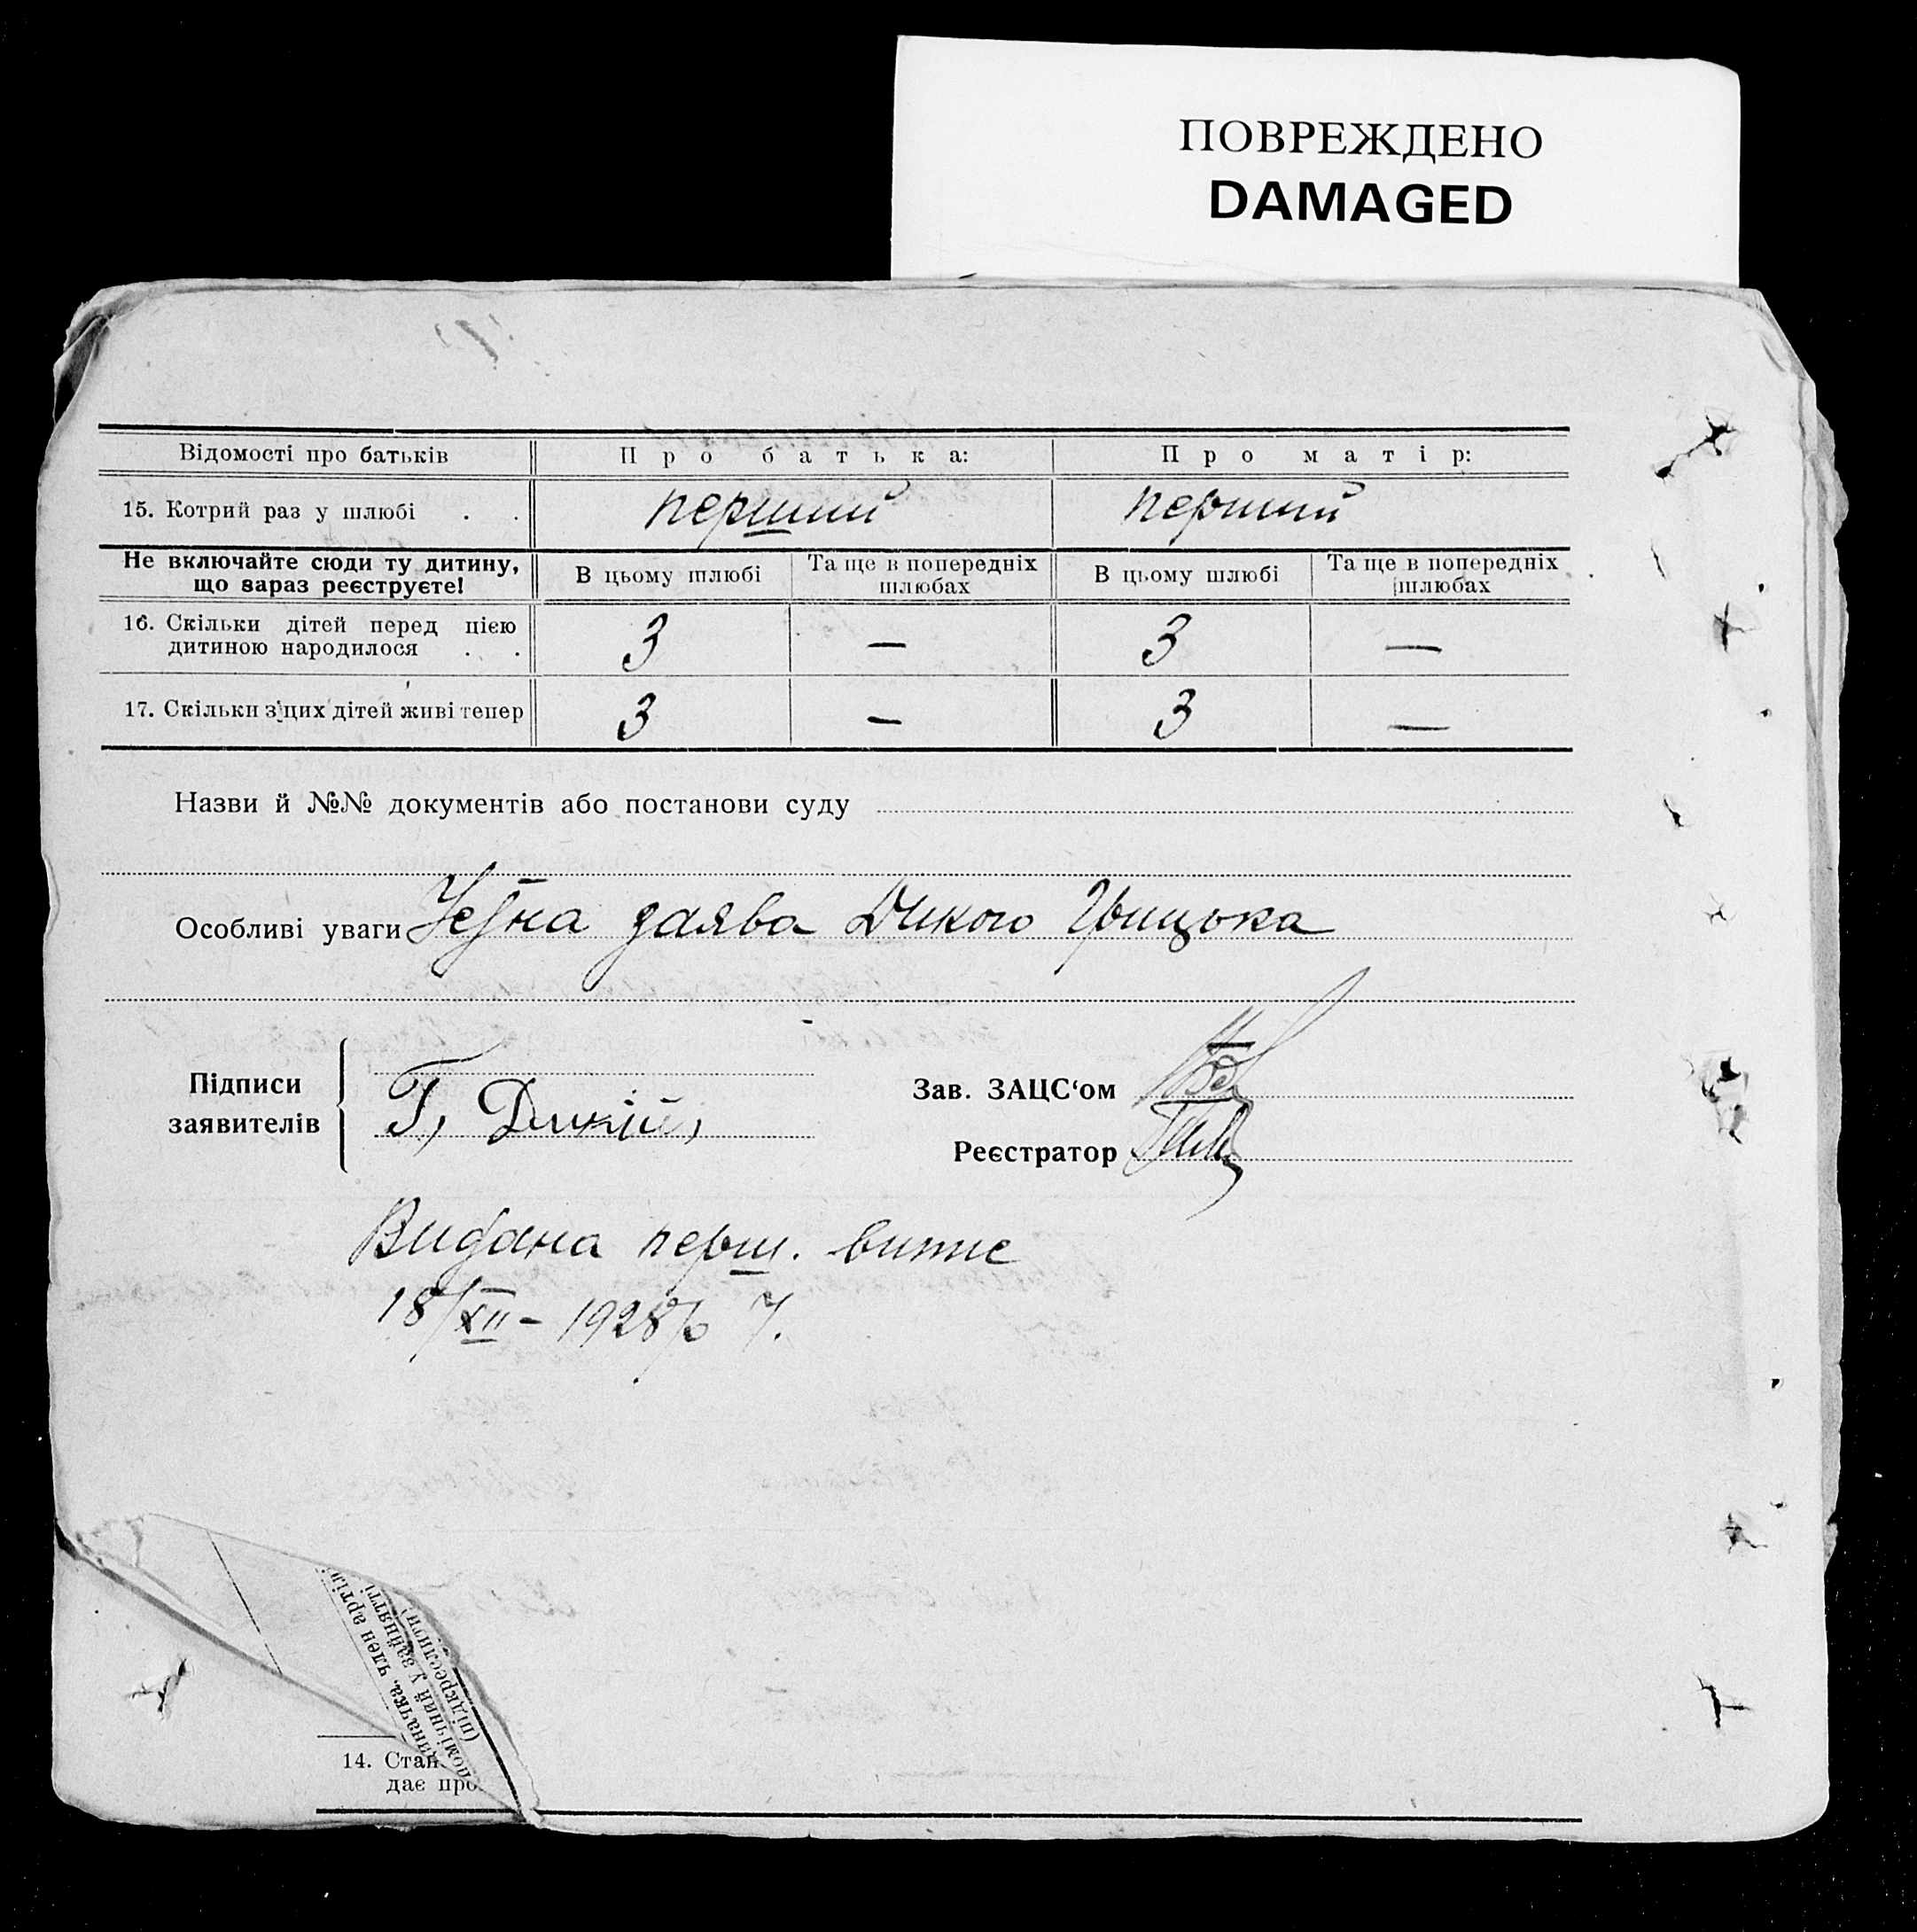 ПОВРЕЖДЕНО
DAMAGED
Відомості про батьків Про батька: Про матір:
15. Котрий раз у шлюбі . . перший перший
Не включайте сюди ту дитину, що зараз реєструєте! В цьому шлюбі Та ще в попередніх шлюбах В цьому шлюбі Та ще в попередніх шлюбах
16. Скільки дітей перед цією дитиною народилося . . 3 — 3 —
17. Скільки з'цих дітей живі тепер 3 — 3 —
Назви й №№ документів або постанови суду
Особливі уваги Устна заява Дикого Грицька
Підписи заявителів Г, Дикій,
Зав. ЗАЦС‘ом
Реєстратор
Видана перш. випис
18/XII – 1928
(підкреслити)
помічний у занятті
член артіл
14. Стан
дає про